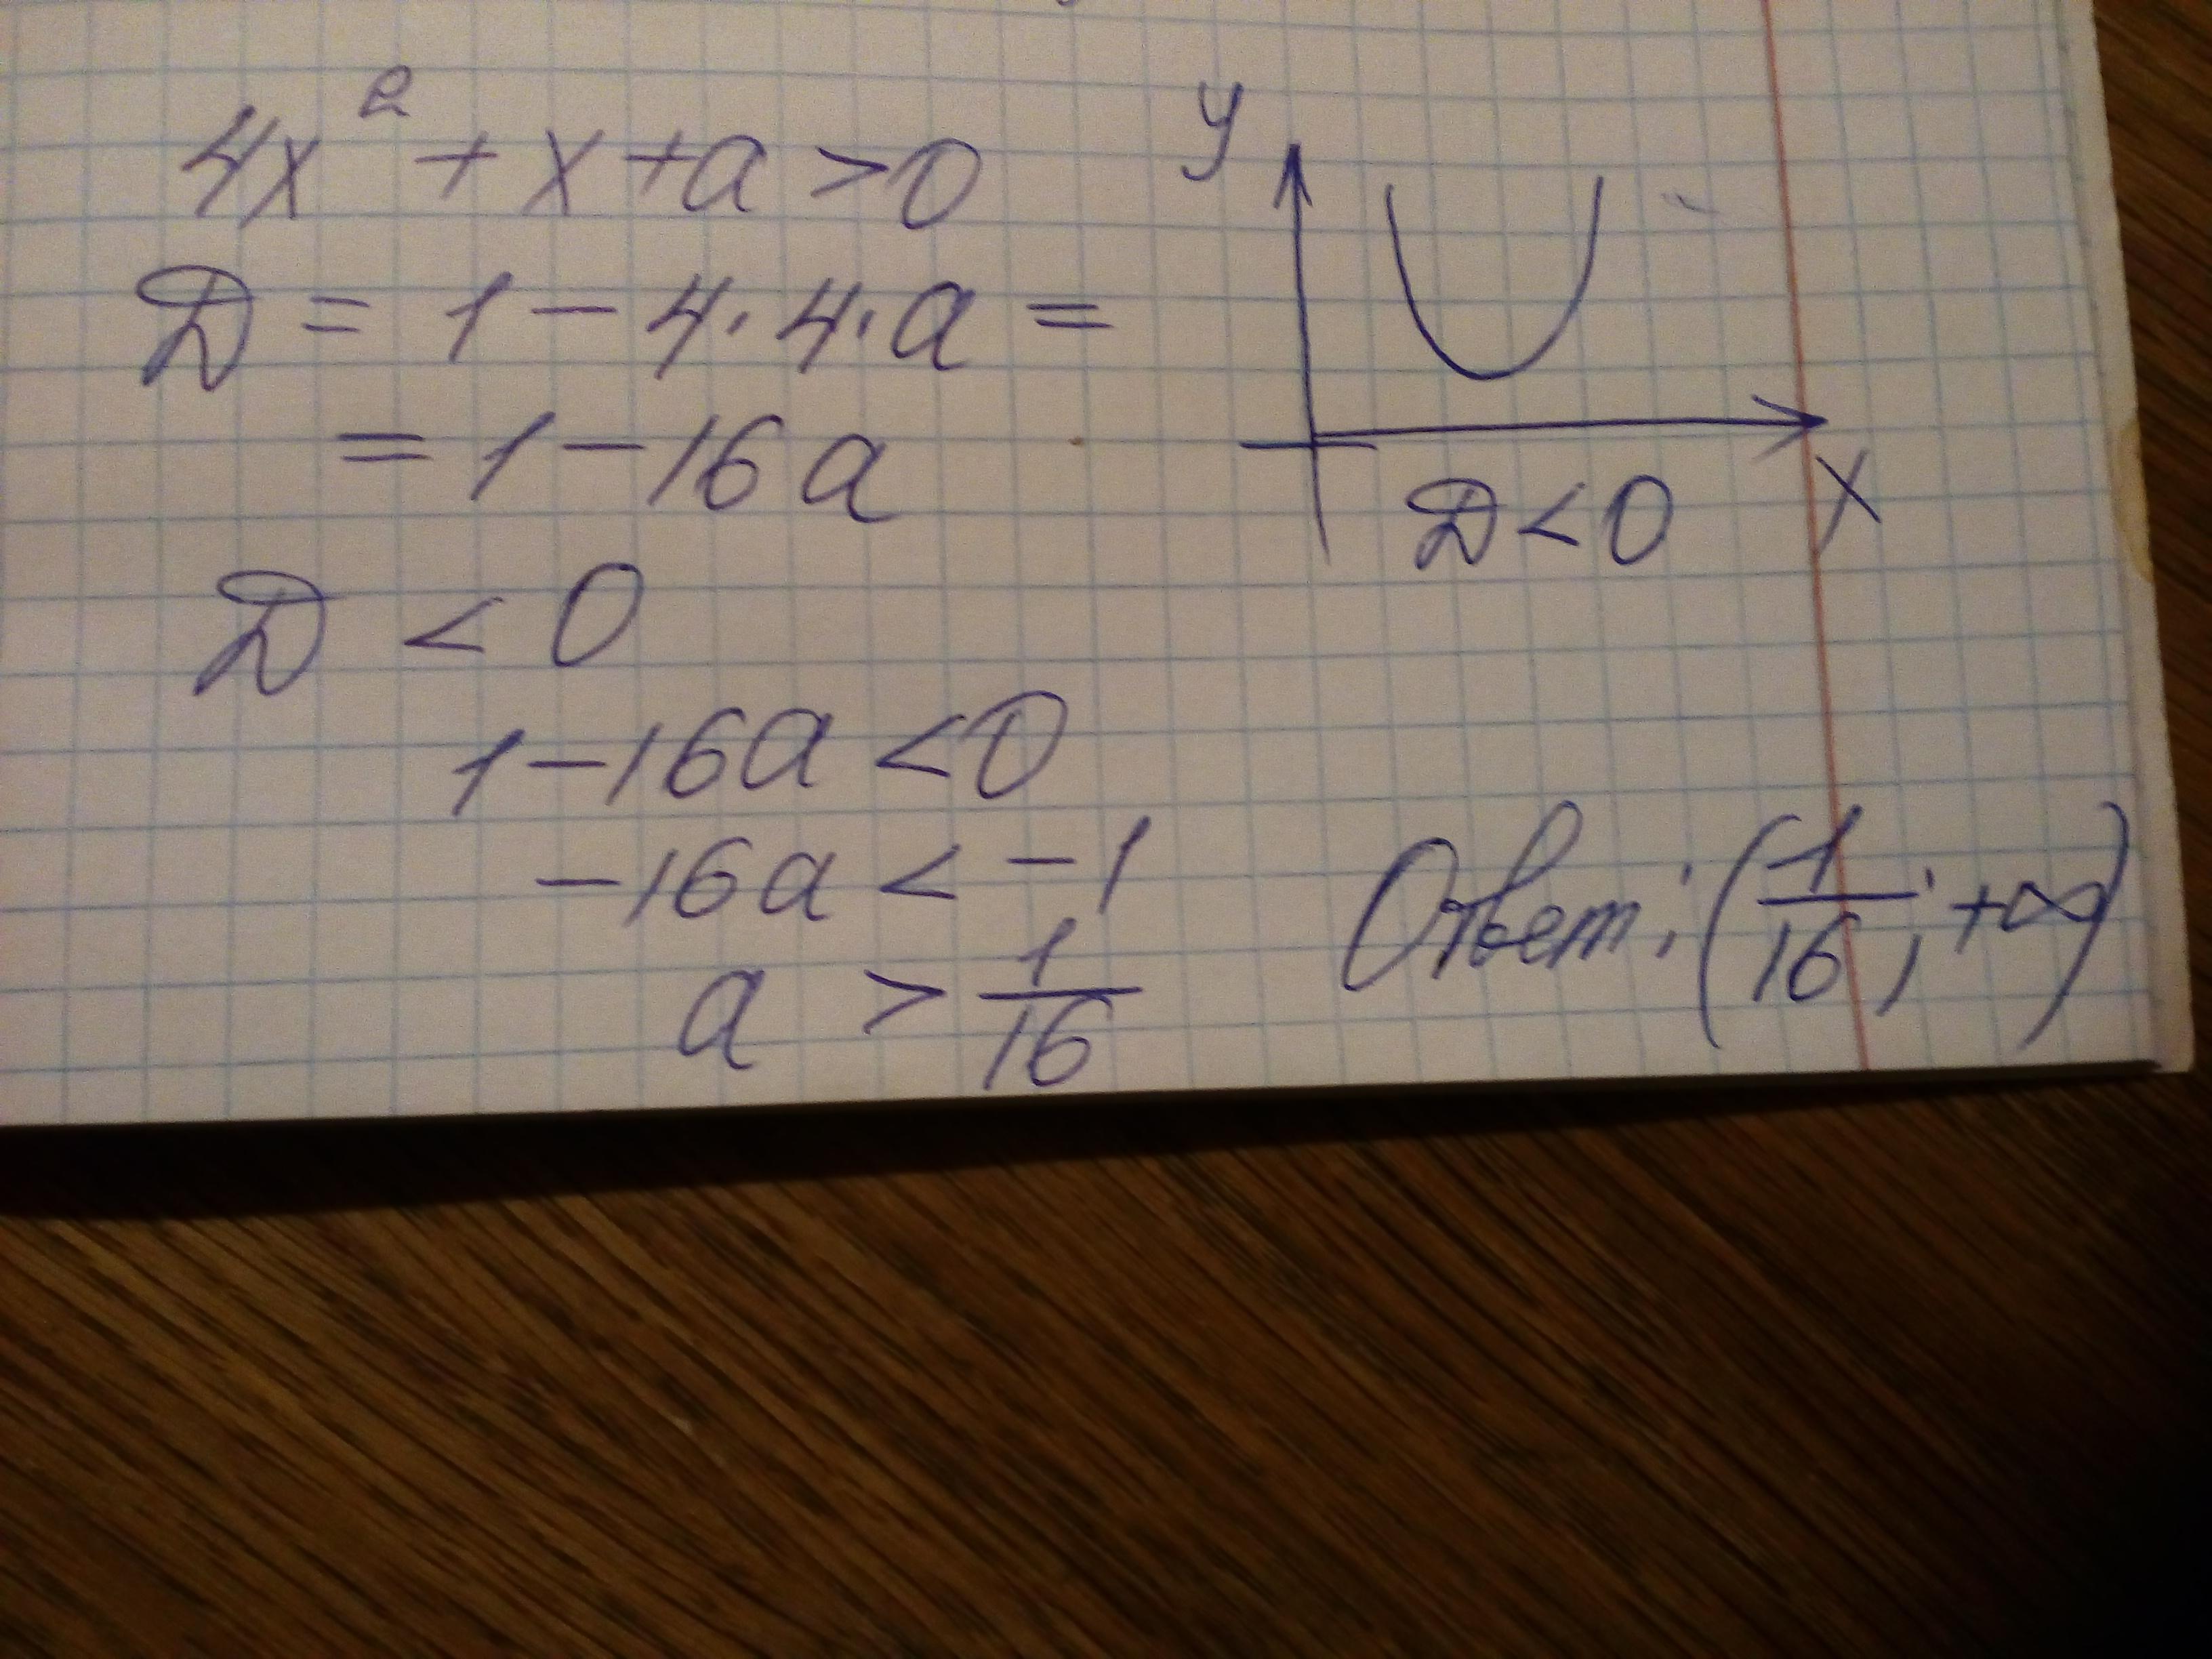 4x² + x + a > 0
D = 1 − 4·4·a =
= 1 − 16a
D < 0
1 − 16a < 0
−16a < −1
a > 1/16
y
x
D < 0
Ответ: (1/16; +∞)